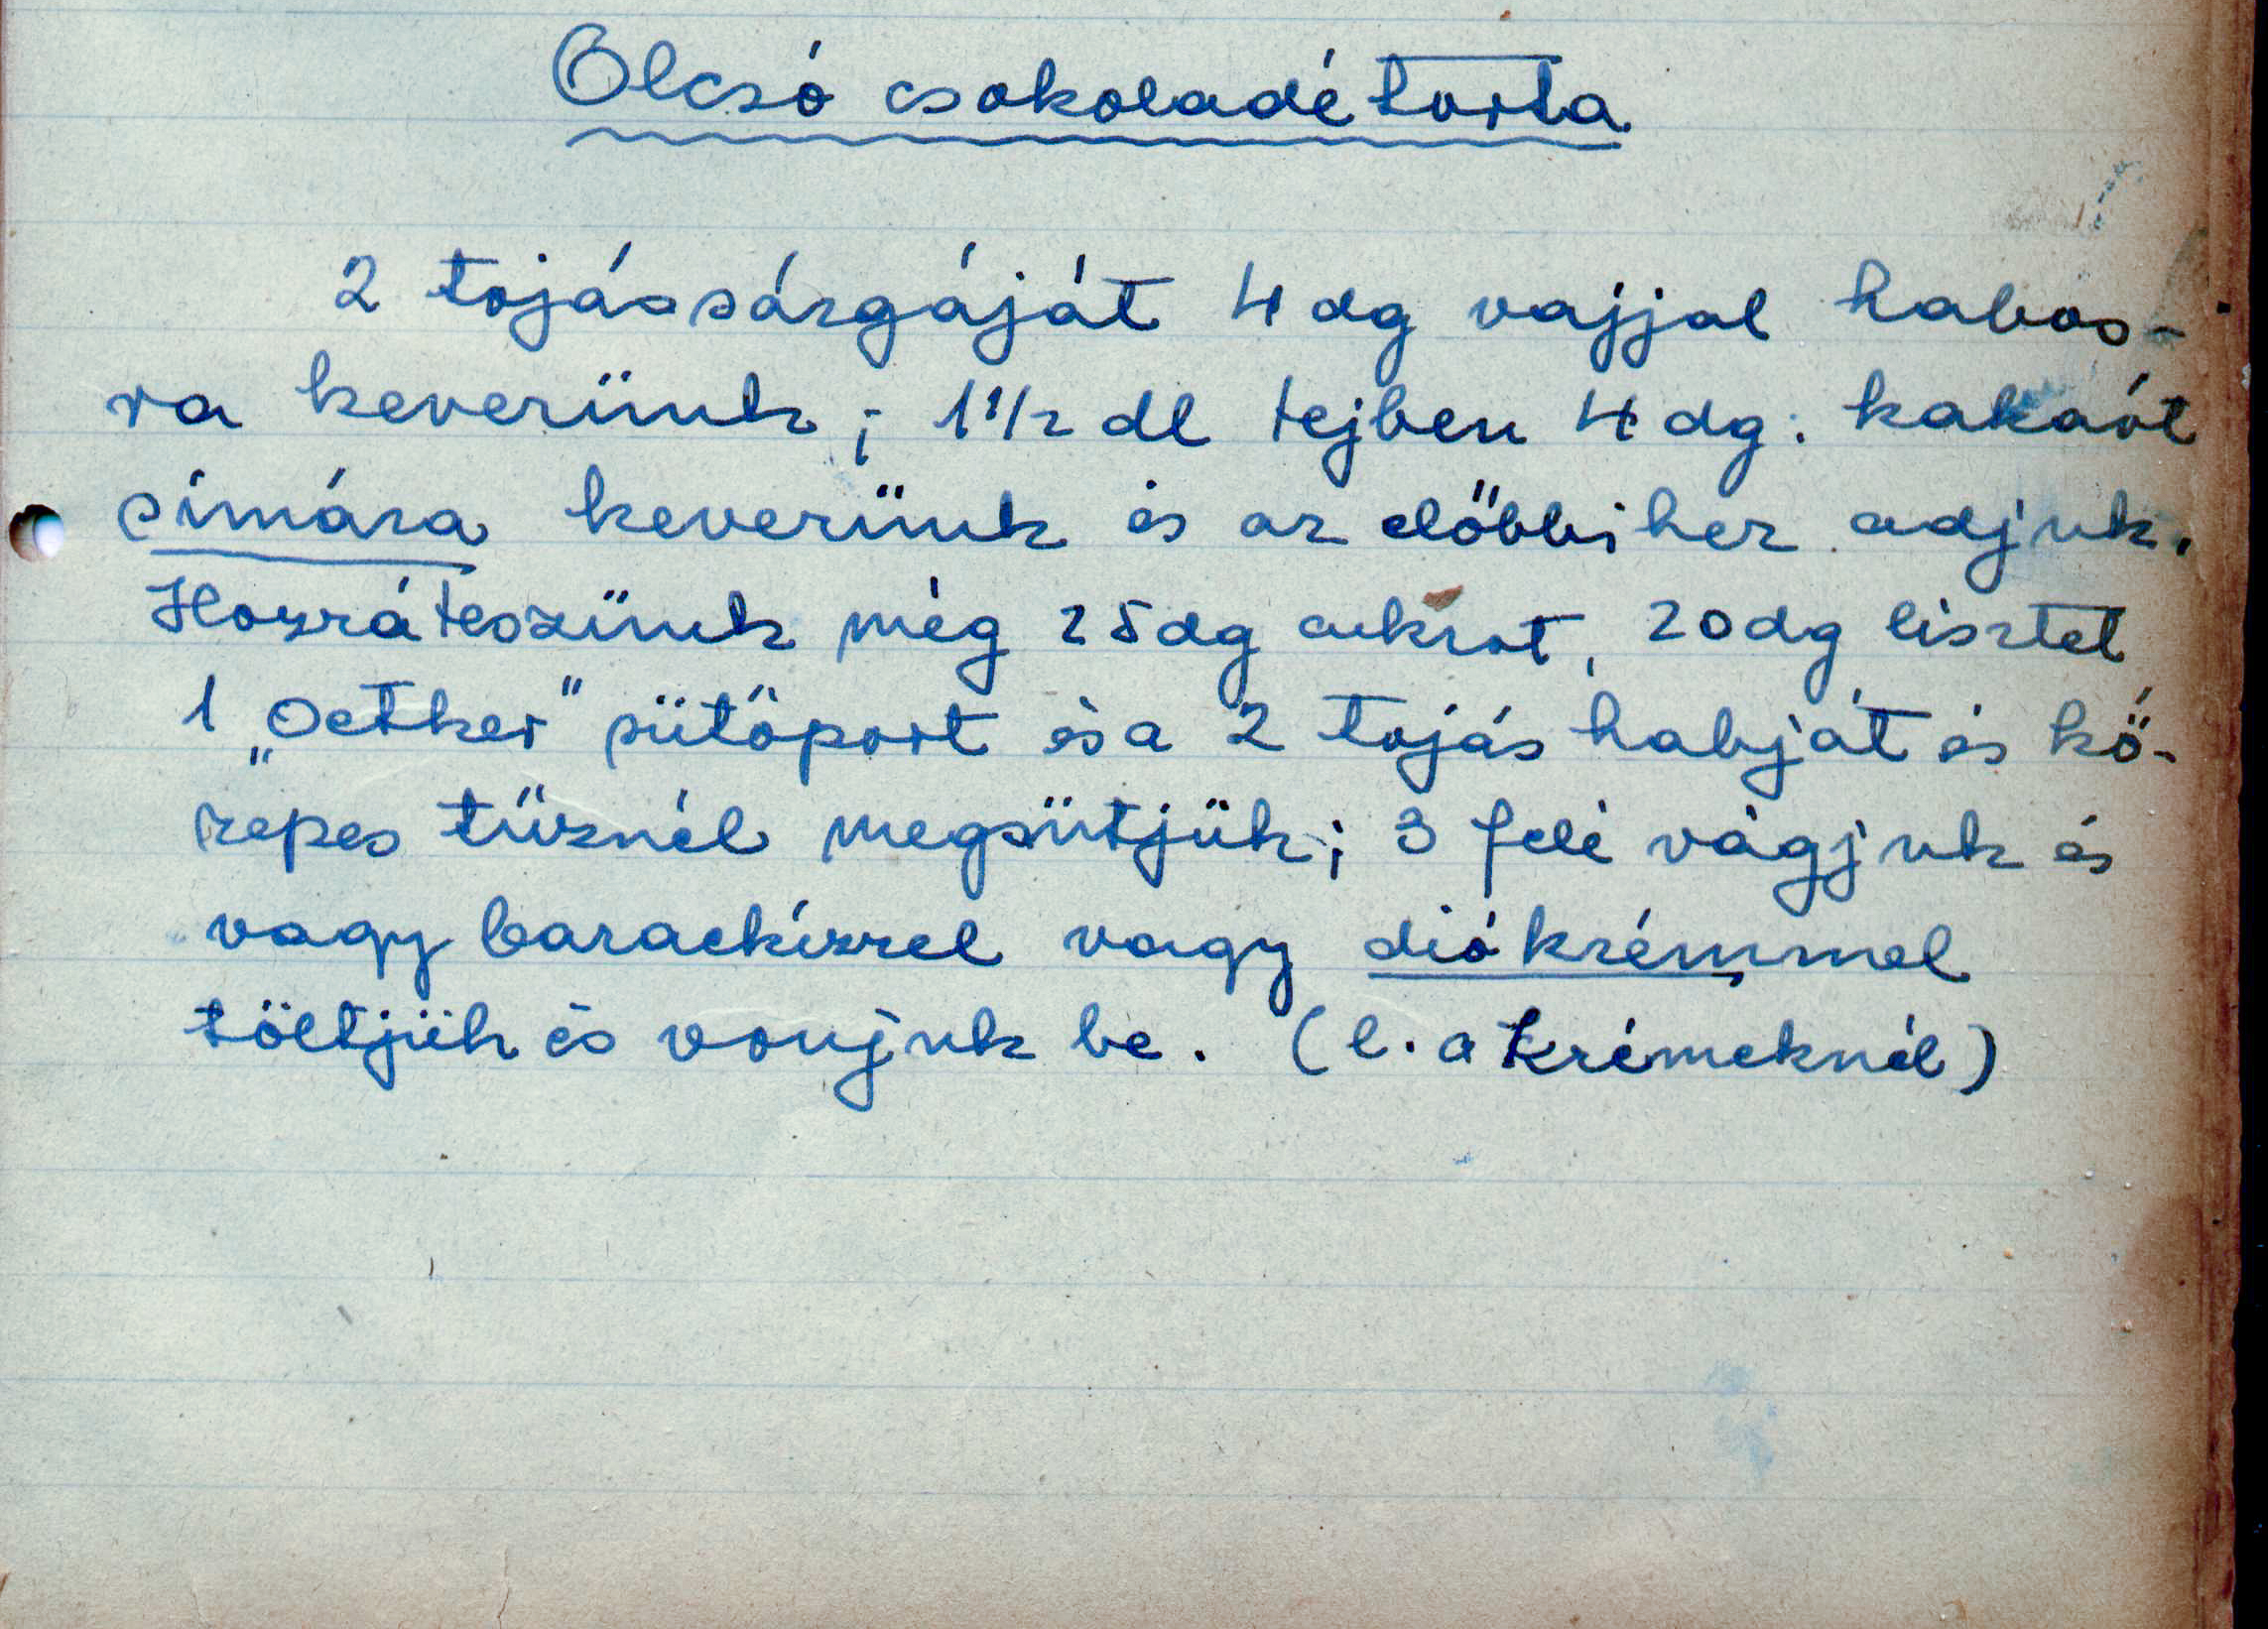 Olcsó csokoládétorta
2 tojássárgáját 4 dg vajjal habos-
ra keverünk; 1 1/2 dl tejben 4 dg. kakaót
símára keverünk és az előbbihez adjuk.
Hozzáteszünk még 25 dg cukrot, 20 dg lisztet
1 „Oetker" sütőport és a 2 tojás habját és kö-
zepes tűznél megsütjük; 3 felé vágjuk és
vagy barackízzel vagy diókrémmel
töltjük és vonjuk be. (l. a krémeknél)